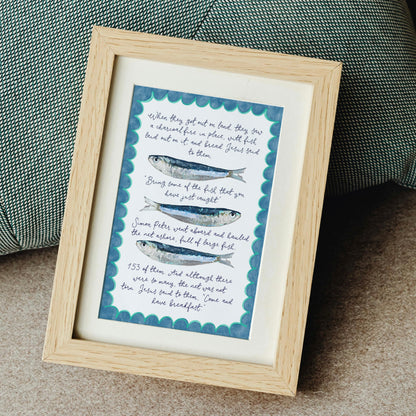 When they got out on land, they saw
a charcoal fire in place, with fish
laid out on it, and bread. Jesus said
to them
"Bring some of the fish that you
have just caught"
Simon Peter went aboard and hauled
the net ashore, full of large fish,
153 of them. And although there
were so many, the net was not
torn. Jesus said to them, "Come and
have breakfast."